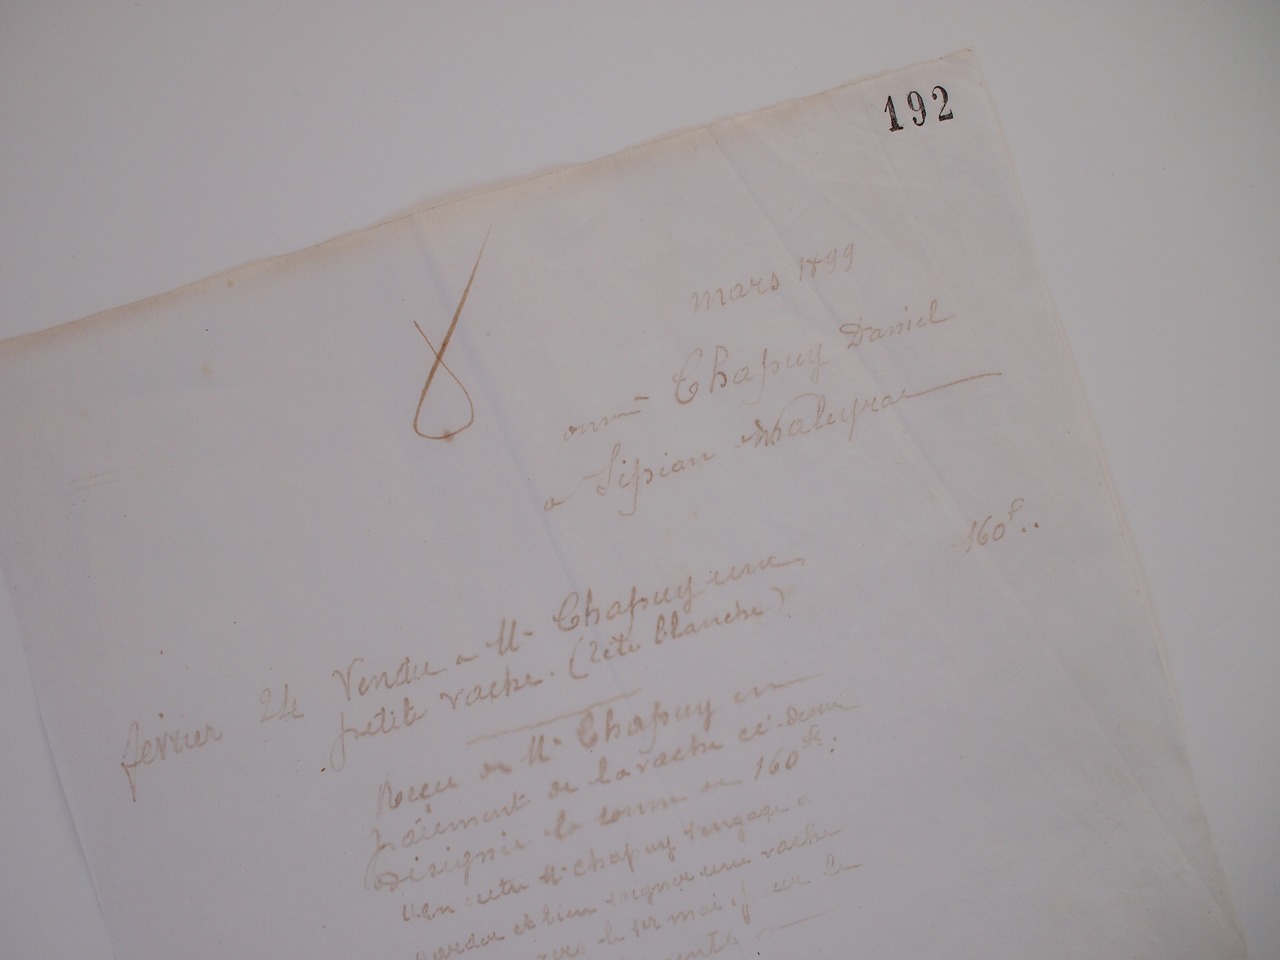 192
8
mars 1899
Chapuy Daniel
a Sipian Valeyrac
160 f..
février 24 Vendu a Mr Chapuy une
petite vache. (tête blanche)
Reçu de Mr Chapuy en
païement de la vache ci-dessus
désignée la somme de 160 fs.
En outre Mr Chapuy s'engage a
garder et bien soigner une vache
le 1er mai